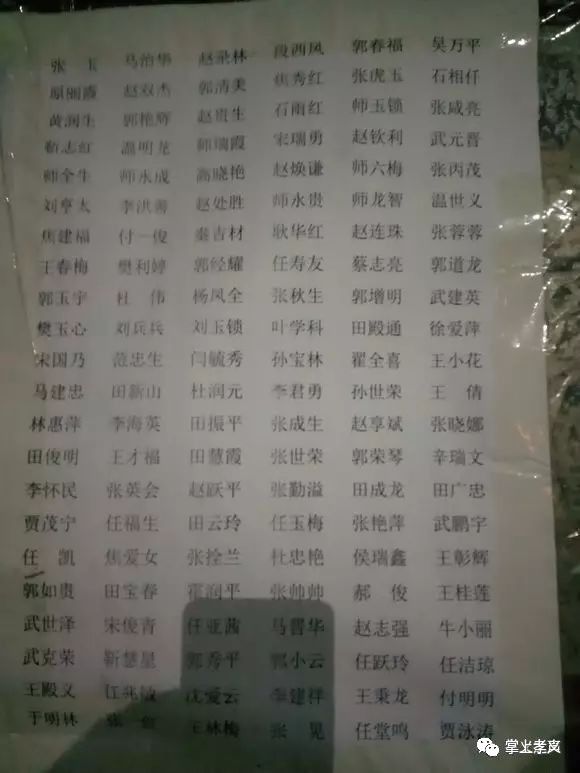 张 玉 马治华 赵录林 段西凤 郭春福 吴万平
原丽霞 赵双杰 郭清美 焦秀红 张虎玉 石相仟
黄润生 郭艳辉 赵贵生 石雨红 师玉锁 张咸亮
靳志红 温明龙 师瑞霞 宋瑞勇 赵钦利 武元晋
师全生 师永成 高晓艳 赵焕谦 师六梅 张丙茂
刘亨太 李洪善 赵处胜 师永贵 师龙智 温世义
焦建福 付一俊 秦吉材 耿华红 赵连珠 张蓉蓉
王春梅 樊利婷 郭经耀 任寿友 蔡志亮 郭道龙
郭玉宇 杜 伟 杨凤全 张秋生 郭增明 武建英
樊玉心 刘兵兵 刘玉锁 叶学科 田殿通 徐爱萍
宋国乃 范忠生 闫毓秀 孙宝林 翟全喜 王小花
马建忠 田新山 杜润元 李君勇 孙世荣 王 倩
林惠萍 李海英 田振平 张成生 赵享斌 张晓娜
田俊明 王才福 田慧霞 张世荣 郭荣琴 辛瑞文
李怀民 张英会 赵跃平 张勤溢 田成龙 田广忠
贾茂宁 任福生 田云玲 任玉梅 张艳萍 武鹏宇
任 凯 焦爱女 张拴兰 杜忠艳 侯瑞鑫 王彰辉
郭如贵 田宝春 霍润平 张帅帅 郝 俊 王桂莲
武世泽 宋俊青 任亚茜 马晋华 赵志强 牛小丽
武克荣 靳慧星 郭秀平 郭小云 任跃玲 任洁琼
王殿义 江兆敏 沈爱云 李建祥 王秉龙 付明明
于明林 张 王林梅 张 晃 任堂鸣 贾泳涛
掌上孝离